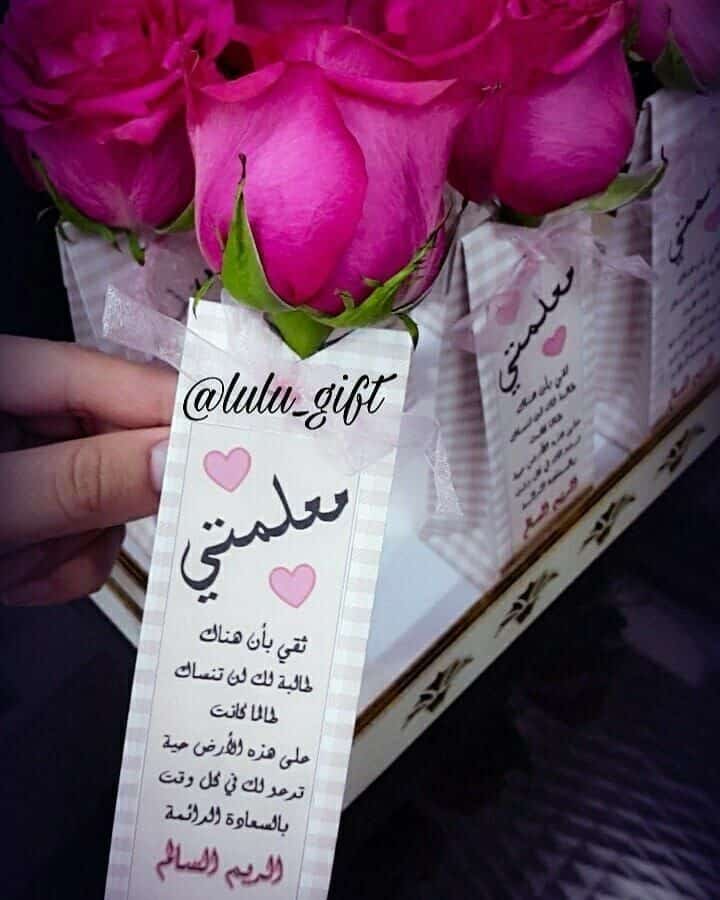 @lulu_gift
معلمتي
ثقي بأن هناك
طالبة لك لن تنساك
طالما كانت
على هذه الأرض حية
تدعو لك في كل وقت
بالسعادة الدائمة
الريم السالم
معلمتي
ثقي بأن هناك
طالبة لك لن تنساك
طالما كانت
على هذه الأرض حية
تدعو لك في كل وقت
بالسعادة الدائمة
الريم السالم
معلمتي